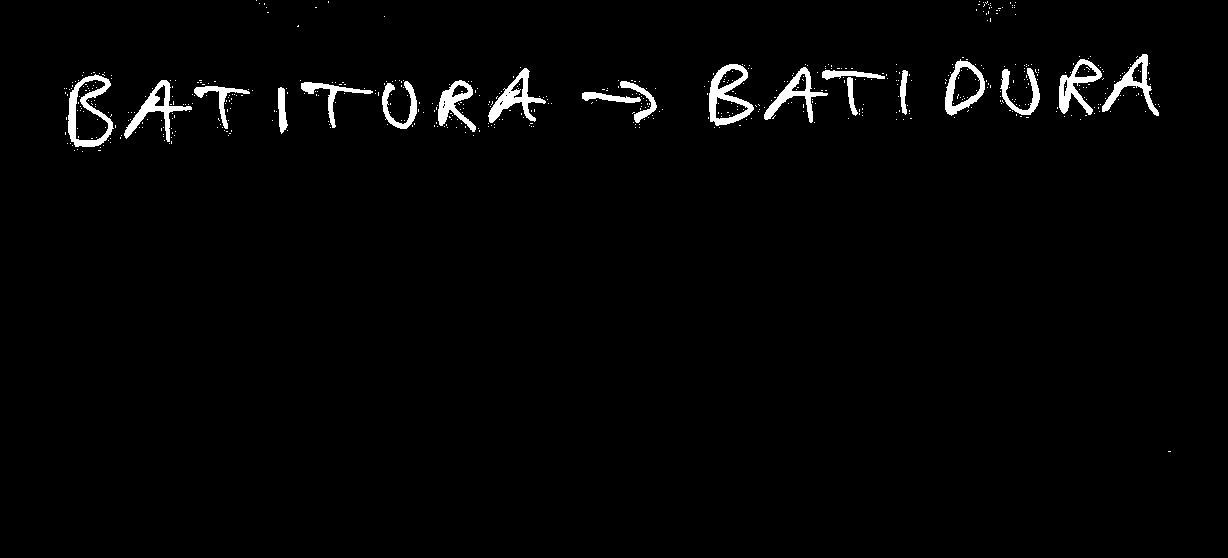 BATITURA → BATIDURA